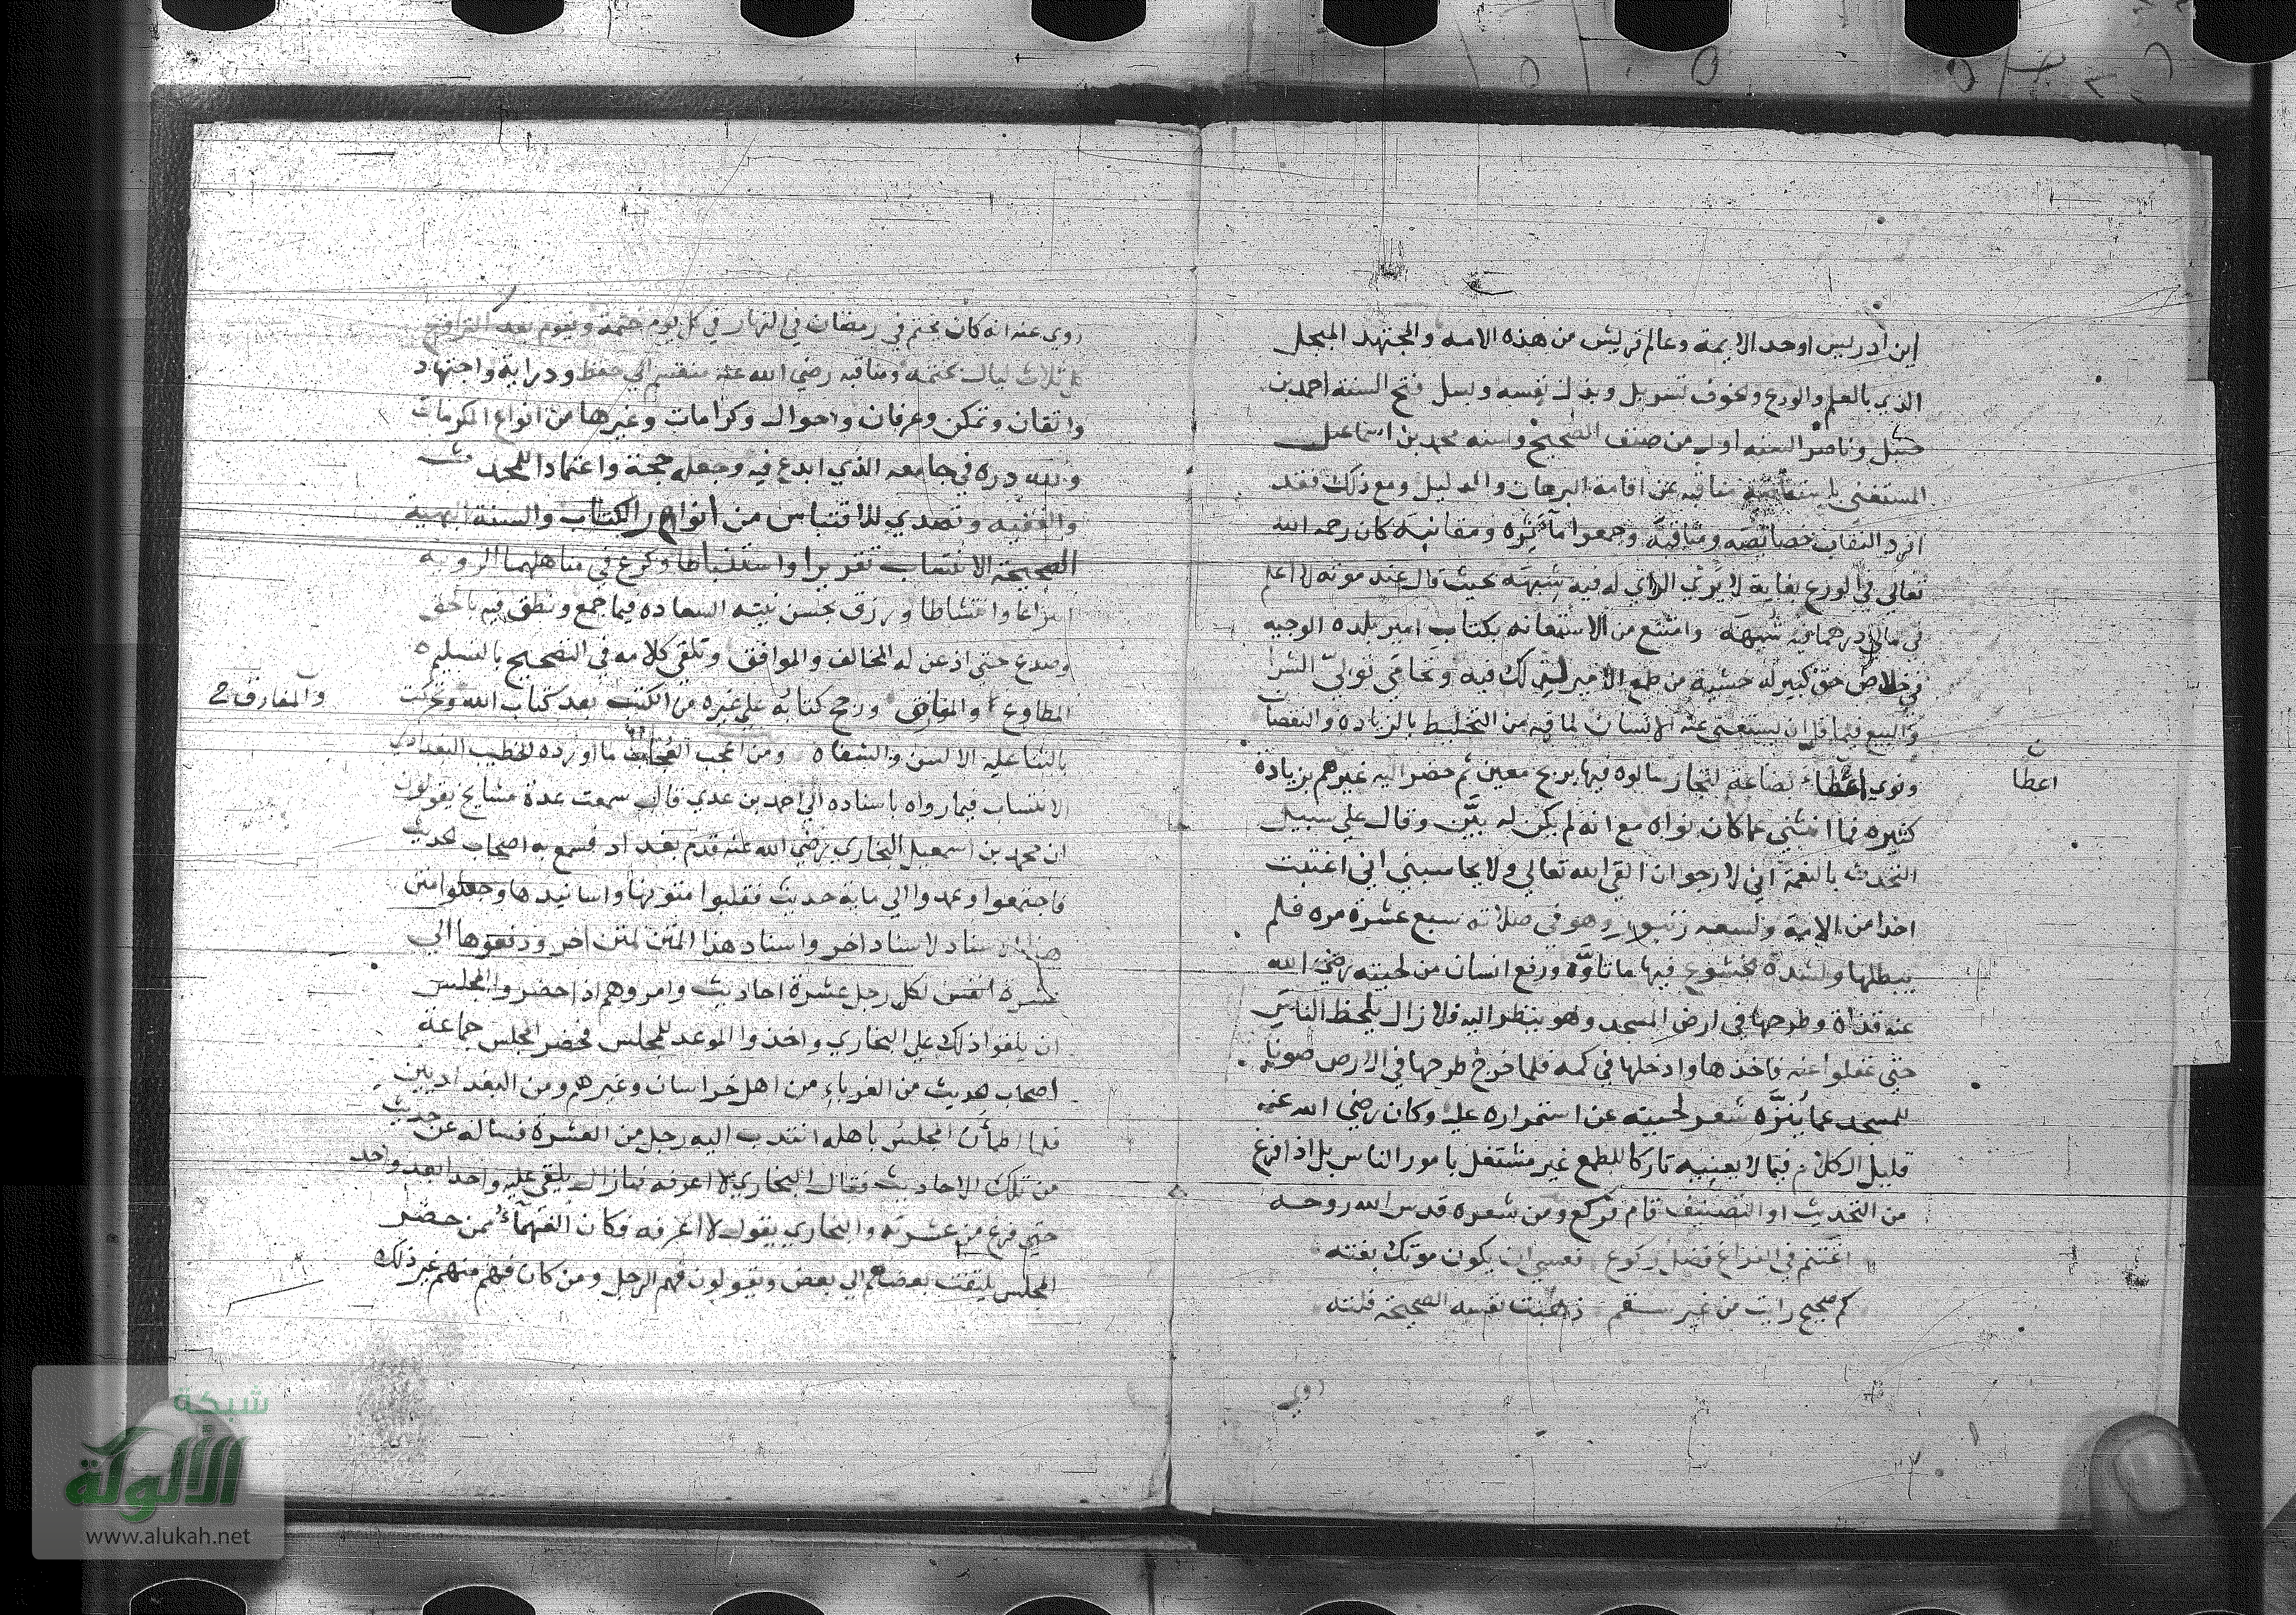 ابن ادريس اوحد الايمة وعالم قريش من هذه الامه والمجتهد المبجل
الذي بالعلم والورع والخوف تسربل وبذل نفسه وبسل فتح السنة احمد بن
حنبل وناصر السنه اول من صنف الصحيح واسنه محمد بن اسماعيل
المستغني باستفاضة مناقبه عن اقامة البرهان والدليل ومع ذلك فقد
افرد النقاب خصائصه ومناقبه وجمعوا مآثره ومقانبه كان رحمه الله
تعالى في الورع بغاية لا يرى الراي له فيه شبهه بحيث قال عند موته لا اعلم
في مالي درهما فيه شبهه وامتنع من الاستعانه بكتاب امير بلده الوجيه
في خلاص حق كبير له خشية من طمع الامير ليترك فيه وتحامى تولي الشرا
والبيع فيما قل ان يستغني عنه الانسان لما فيه من التخليط بالزياده والنقصان
ونوى اعطاء بضاعة لتجار سالوه فيها بربح معين ثم حضر اليه غيرهم بزيادة
ن
اعطا
كثيره فما انثنى عما كان نواه مع انه لم يكن له بيّن وقال على سبيل
التحدث بالنعمة اني لارجو ان القى الله تعالى ولا يحاسبني اني اغتبت
احدا من الامة ولسعه زنبور وهو في صلاته سبع عشرة مره فلم
يبطلها ولشدة خشوع فيها ما تاوّه ورفع انسان من لحيته رضي الله
عنه قذاة وطرحها في ارض المسجد وهو ينظر اليه فلا زال يلحظ الناس
حتى غفلوا عنه فاخذها وادخلها في كمه فلما خرج طرحها في الارض صونا
للمسجد عما يُنزّه شعر لحيته عن استمراره عليه وكان رضي الله عنه
قليل الكلام فيما لا يعنيه تاركا للطمع غير مشتغل بامور الناس بل اذا فرغ
من التحديث او التصنيف قام فركع ومن شعره قدس الله روحه
اغتنم في الفراغ فضل ركوع فعسى ان يكون موتك بغته
كم صحيح رايت من غير سقم ذهبت نفسه الصحيحة فلته
روي
روي عنه انه كان يختم في رمضان في النهار في كل يوم ختمة ويقوم بعد التراويح
كل ثلاث ليال بختمه ومناقبه رضي الله عنه منقسم الى حفظ ودراية واجتهاد
واتقان وتمكن وعرفان واحوال وكرامات وغيرها من انواع المكرمات
ولله دره في جامعه الذي ابدع فيه وجعله حجة واعتمادا للمحدث
والفقيه وتصدي للاقتباس من انوار الكتاب والسنة البهية
الصحيحة الانتساب تقريرا واستنباطا وكرع في مناهلهما الروية
انتزاعا وانتشاطا ورزق بحسن نيته السعاده فيما جمع ونطق فيه بالحق
وصدع حتى اذعن له المخالف والموافق وتلقى كلامه في الصحيح بالتسليم
المطاوع والمفارق ورجح كتابه على غيره من الكتب بعد كتاب الله وتحركت
والمفارق
بالثنا عليه الالسن والشفاه ومن اعجب ما اورده الخطيب البغدادي
الانتساب فيما رواه باسناده الى احمد بن عدي قال سمعت عدة مشايخ يقولون
ان محمد بن اسمعيل البخاري رضي الله عنه قدم بغداد فسمع به اصحاب الحديث
فاجتمعوا وعمدوا الى ماية حديث فقلبوا متونها واسانيدها وجعلوا متن
هذا الاسناد لاسناد اخر واسناد هذا المتن لمتن اخر ودفعوها الى
عشرة انفس لكل رجل عشرة احاديث وامروهم اذا حضروا المجلس
ان يلقوا ذلك على البخاري واخذوا الموعد للمجلس فحضر المجلس جماعة
اصحاب حديث من الغرباء من اهل خراسان وغيرهم ومن البغداديين
فلما اطمأن المجلس باهله انتدب اليه رجل من العشرة فساله عن حديث
من تلك الاحاديث فقال البخاري لا اعرفه فما زال يلقي عليه واحدا بعد واحد
حتى فرغ من عشرته والبخاري يقول لا اعرفه فكان الفهماء ممن حضر
المجلس يلتفت بعضهم الى بعض ويقولون فهم الرجل ومن كان فهم منهم غير ذلك
شبكة
الألوكة
www.alukah.net